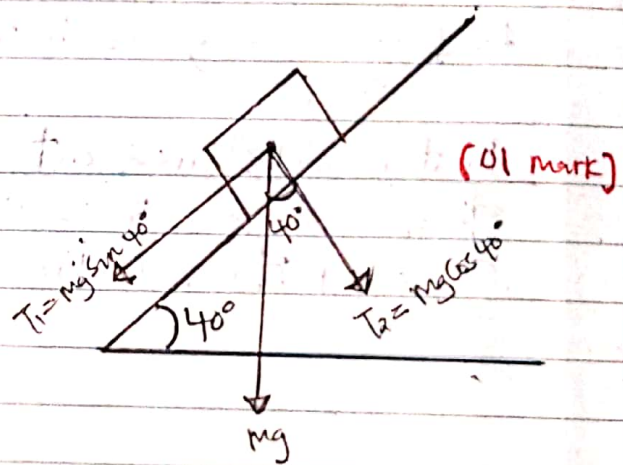 (01 mark)
40°
T₁= mg sin 40°
T₂= mg cos 40°
40°
mg